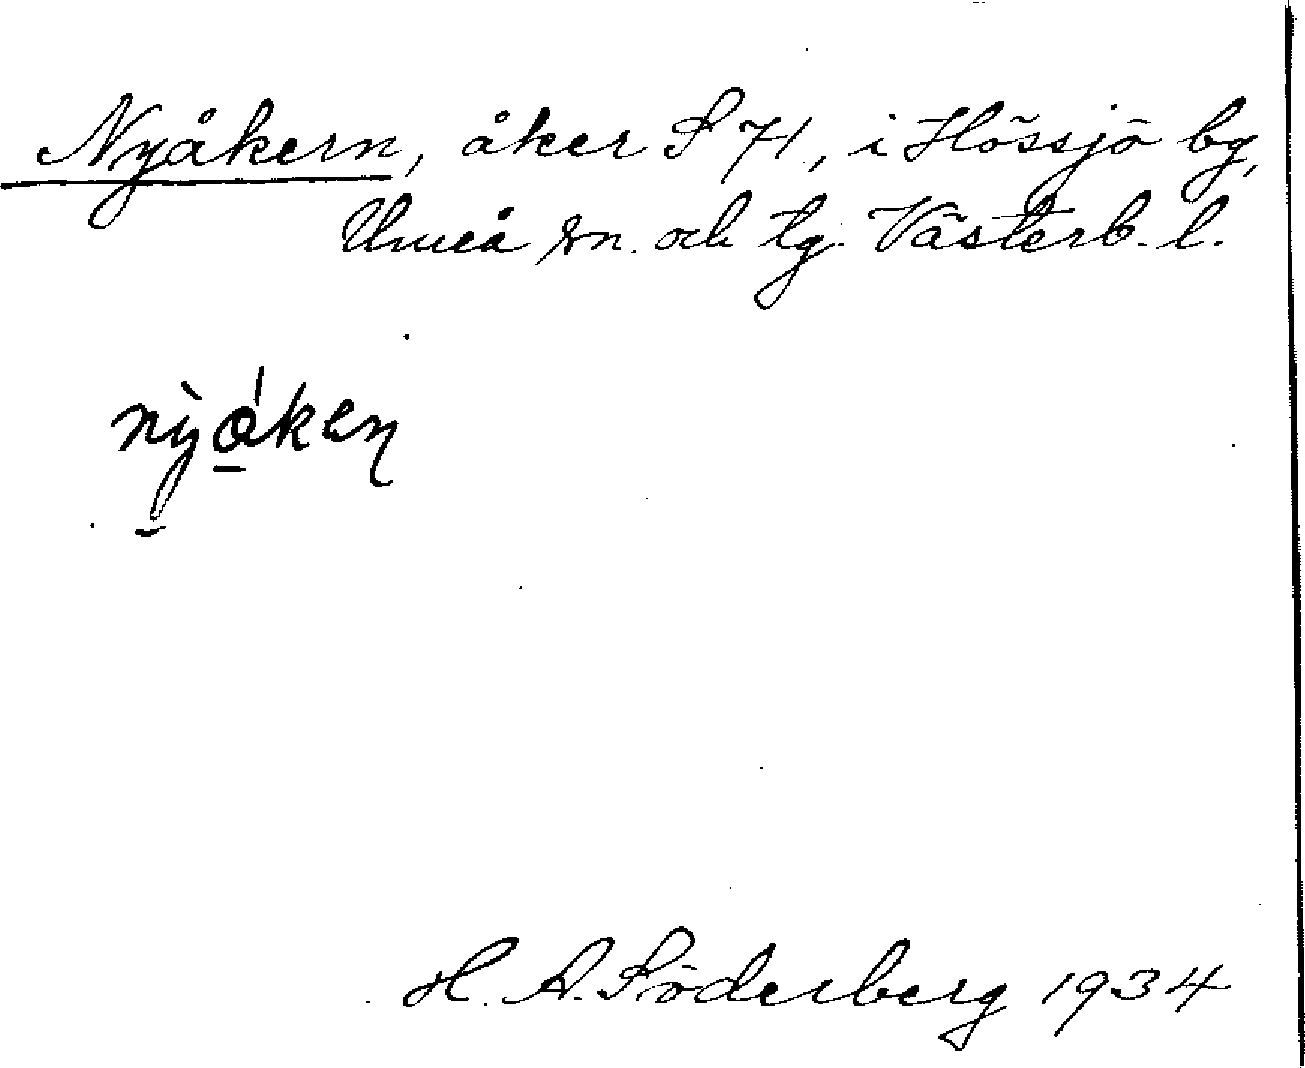 Nyåkern, åker S 71, i Hössjö by,
Umeå sn. och tg. Västerb. l.
nỳ̠åkeņ
H. A. Söderberg 1934